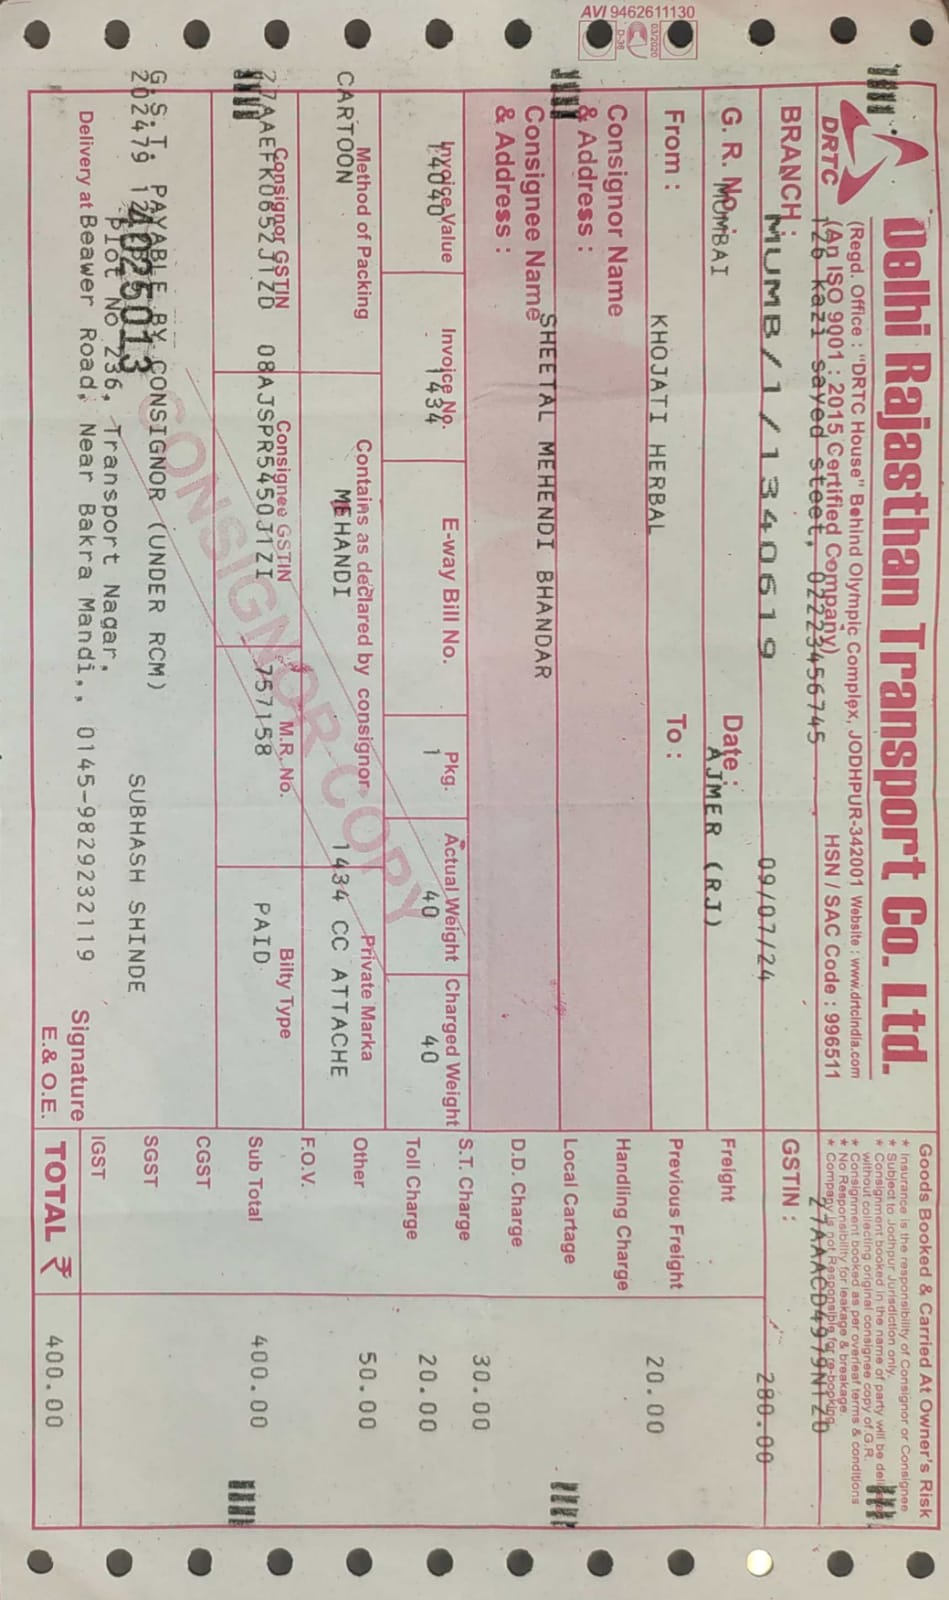 AVI 9462611130
03/2020
D-36
DRTC
Delhi Rajasthan Transport Co. Ltd.
(Regd. Office : "DRTC House" Behind Olympic Complex, JODHPUR-342001 Website : www.drtcindia.com
(An ISO 9001 : 2015 Certified Company) HSN / SAC Code : 996511
126 kazi sayed steet, 02223456745
Goods Booked & Carried At Owner's Risk
* Insurance is the responsibility of Consignor or Consignee
* Subject to Jodhpur Jurisdiction only.
* Consignment booked in the name of party will be
without collecting original consignee copy of G.R.
* Consignment booked as per overleaf terms & conditions
* No Responsibility for leakage & breakage.
* Company is not Responsible for re-booking
BRANCH :
MUMB/1/1340619 09/07/24
GSTIN : 27AAACD4979N1Z0
G. R. No. : Date :
MUMBAI AJMER (RJ)
Freight 280.00
From : To :
KHOJATI HERBAL
Previous Freight 20.00
Consignor Name
& Address :
Handling Charge
Local Cartage
SHEETAL MEHENDI BHANDAR
Consignee Name
& Address :
D.D. Charge
S.T. Charge 30.00
Invoice Value Invoice No. E-way Bill No. Pkg. Actual Weight Charged Weight
14040 1434 1 40 40
Toll Charge 20.00
Method of Packing Contains as declared by consignor Private Marka
CARTOON MEHANDI 1434 CC ATTACHE
Other 50.00
F.O.V.
Consignor GSTIN Consignee GSTIN M.R. No. Bilty Type
27AAEFK0652J1ZD 08AJSPR5450J1ZI 757158 PAID
Sub Total 400.00
CONSIGNOR COPY
CGST
G.S.T. PAYABLE BY CONSIGNOR (UNDER RCM)
SGST
202479 12
4025013
SUBHASH SHINDE
Plot No 236, Transport Nagar,
IGST
Delivery at Beawer Road, Near Bakra Mandi,, 0145-9829232119
Signature
E.& O.E.
TOTAL ₹ 400.00